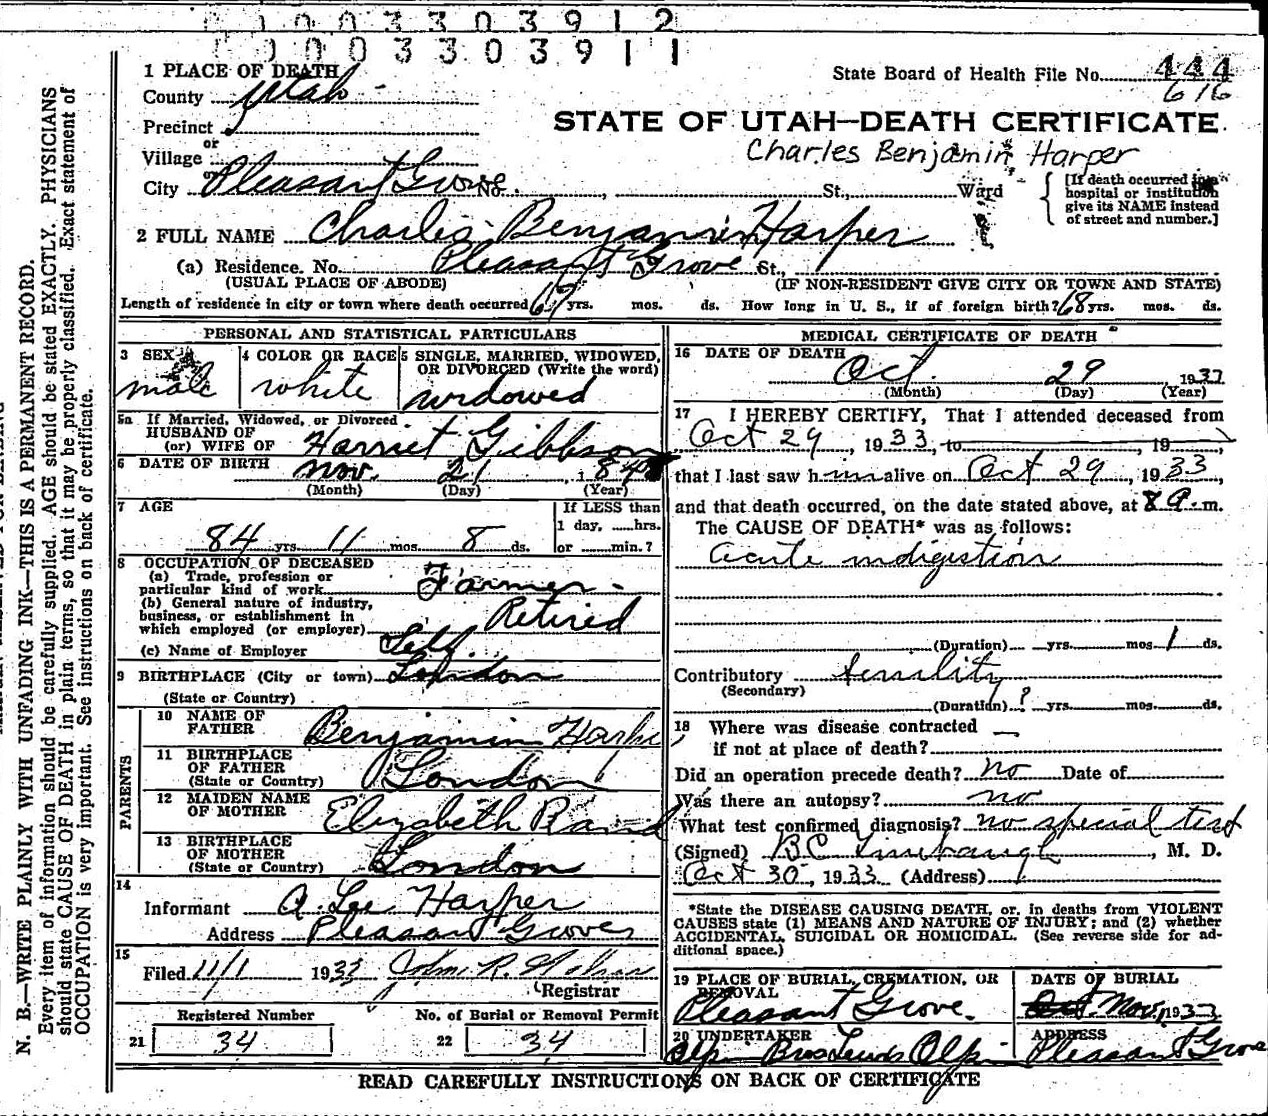 0003303912
0003303911
State Board of Health File No. 444
616
STATE OF UTAH—DEATH CERTIFICATE
Charles Benjamin Harper
1 PLACE OF DEATH
County Utah
Precinct
or
Village
or
City Pleasant Grove No. , St., Ward
[If death occurred in a hospital or institution give its NAME instead of street and number.]
2 FULL NAME Charles Benjamin Harper
(a) Residence. No. Pleasant Grove St.,
(USUAL PLACE OF ABODE) (IF NON-RESIDENT GIVE CITY OR TOWN AND STATE)
Length of residence in city or town where death occurred 67 yrs. mos. ds. How long in U. S., if of foreign birth? 68 yrs. mos. ds.
PERSONAL AND STATISTICAL PARTICULARS
3 SEX
male
4 COLOR OR RACE
white
5 SINGLE, MARRIED, WIDOWED,
OR DIVORCED (Write the word)
widowed
5a If Married, Widowed, or Divorced
HUSBAND OF
(or) WIFE OF Harriet Gibbson
6 DATE OF BIRTH Nov. 21, 184
(Month) (Day) (Year)
7 AGE
84 yrs. 11 mos. 8 ds.
If LESS than
1 day, ......hrs.
or ........min.?
8 OCCUPATION OF DECEASED
(a) Trade, profession or
particular kind of work Farmer -
(b) General nature of industry,
business, or establishment in
which employed (or employer) Retired
(c) Name of Employer Self
9 BIRTHPLACE (City or town) London
(State or Country)
PARENTS
10 NAME OF
FATHER Benjamin Harper
11 BIRTHPLACE
OF FATHER
(State or Country) London
12 MAIDEN NAME
OF MOTHER Elizabeth Rand
13 BIRTHPLACE
OF MOTHER
(State or Country) London
14
Informant A. Lee Harper
Address Pleasant Grove
15
Filed 11/1 1933 John R.
Registrar
Registered Number
21 34
No. of Burial or Removal Permit
22 34
MEDICAL CERTIFICATE OF DEATH
16 DATE OF DEATH
Oct. 29, 1933
(Month) (Day) (Year)
17 I HEREBY CERTIFY, That I attended deceased from
Oct 29, 1933, to , 19
that I last saw him alive on Oct 29, 1933,
and that death occurred, on the date stated above, at 8 a. m.
The CAUSE OF DEATH* was as follows:
acute indigestion
(Duration) yrs. mos. 1 ds.
Contributory senility
(Secondary)
(Duration) ? yrs. mos. ds.
18 Where was disease contracted —
if not at place of death?
Did an operation precede death? no Date of
Was there an autopsy? no
What test confirmed diagnosis? no special test
(Signed) BC Linebaugh, M. D.
Oct 30, 1933 (Address)
*State the DISEASE CAUSING DEATH, or, in deaths from VIOLENT
CAUSES state (1) MEANS AND NATURE OF INJURY; and (2) whether
ACCIDENTAL, SUICIDAL OR HOMICIDAL. (See reverse side for ad-
ditional space.)
19 PLACE OF BURIAL, CREMATION, OR
REMOVAL
Pleasant Grove.
DATE OF BURIAL
Oct. Nov. 1, 1933
20 UNDERTAKER
ADDRESS
Pleasant Grove
READ CAREFULLY INSTRUCTIONS ON BACK OF CERTIFICATE
N. B.—WRITE PLAINLY WITH UNFADING INK—THIS IS A PERMANENT RECORD.
Every item of information should be carefully supplied. AGE should be stated EXACTLY. PHYSICIANS
should state CAUSE OF DEATH in plain terms, so that it may be properly classified. Exact statement of
OCCUPATION is very important. See instructions on back of certificate.